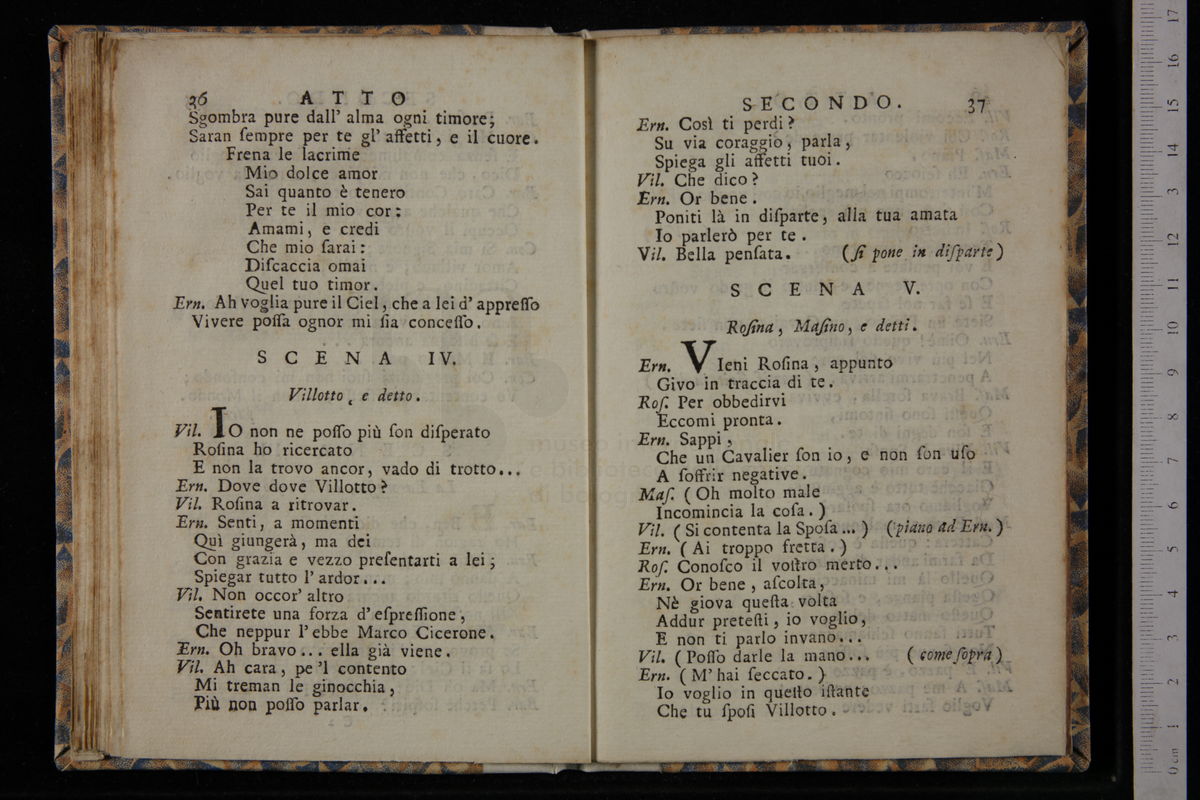 36 ATTO
Sgombra pure dall' alma ogni timore;
Saran ſempre per te gl' affetti, e il cuore.
Frena le lacrime
Mio dolce amor
Sai quanto è tenero
Per te il mio cor:
Amami, e credi
Che mio ſarai:
Diſcaccia omai
Quel tuo timor.
Ern. Ah voglia pure il Ciel, che a lei d' appreſſo
Vivere poſſa ognor mi ſia conceſſo.
SCENA IV.
Villotto, e detto.
Vil. IO non ne poſſo più ſon diſperato
Roſina ho ricercato
E non la trovo ancor, vado di trotto...
Ern. Dove dove Villotto?
Vil. Roſina a ritrovar.
Ern. Senti, a momenti
Quì giungerà, ma dei
Con grazia e vezzo preſentarti a lei;
Spiegar tutto l' ardor...
Vil. Non occor' altro
Sentirete una forza d' eſpreſſione,
Che neppur l' ebbe Marco Cicerone.
Ern. Oh bravo... ella già viene.
Vil. Ah cara, pe 'l contento
Mi treman le ginocchia,
Più non poſſo parlar.
SECONDO. 37
Ern. Così ti perdi?
Su via coraggio, parla,
Spiega gli affetti tuoi.
Vil. Che dico?
Ern. Or bene.
Poniti là in diſparte, alla tua amata
Io parlerò per te.
Vil. Bella penſata. (ſi pone in diſparte)
SCENA V.
Roſina, Maſino, e detti.
Ern. VIeni Roſina, appunto
Givo in traccia di te.
Roſ. Per obbedirvi
Eccomi pronta.
Ern. Sappi,
Che un Cavalier ſon io, e non ſon uſo
A ſoffrir negative.
Maſ. (Oh molto male
Incomincia la coſa.)
Vil. (Si contenta la Spoſa...) (piano ad Ern.)
Ern. (Ai troppo fretta.)
Roſ. Conoſco il voſtro merto...
Ern. Or bene, aſcolta,
Nè giova queſta volta
Addur preteſti, io voglio,
E non ti parlo invano...
Vil. (Poſſo darle la mano... (come ſopra)
Ern. (M' hai ſeccato.)
Io voglio in queſto iſtante
Che tu ſpoſi Villotto.
0 cm 1 2 3 4 5 6 7 8 9 10 11 12 13 14 15 16 17